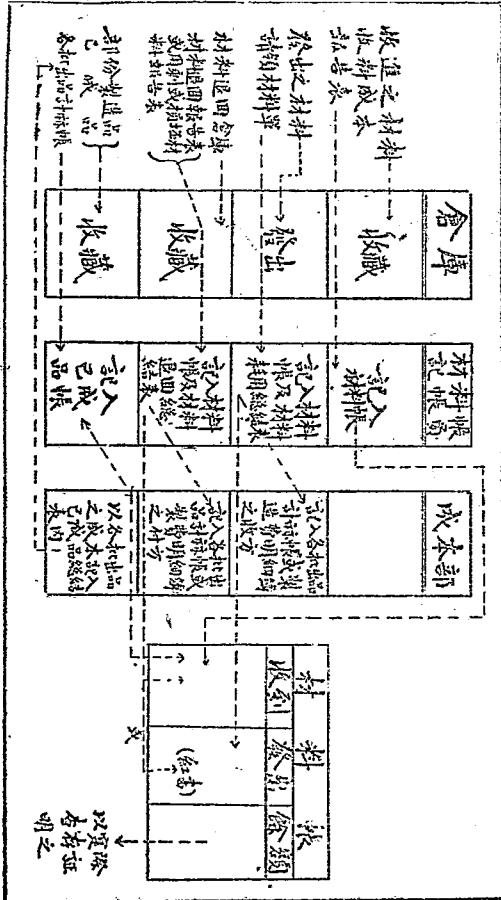 收進之材料
收料成本
報告表
發出之材料
請領材料單
材料退回倉庫
材料退回報告表
或用剩或損坏材
料報告表
一部份製造品
已成品
各批出品計算帳
倉庫
收藏
發出
收藏
收藏
材料帳
記帳員
記入
材料帳
記入材料
帳及材料
耗用總結表
記入材料
帳及材料
退回總
結表
記入
已成
品帳
成本部
記入各批出品
計算帳或製
造費明細簿
之收方
記入各批出
品計算帳或
製費明細簿
之付方
以各批出品
之成本記入
已成品總結
表內
材料帳
收到
發出
餘額
(紅書)
或
以實際
存証
明之